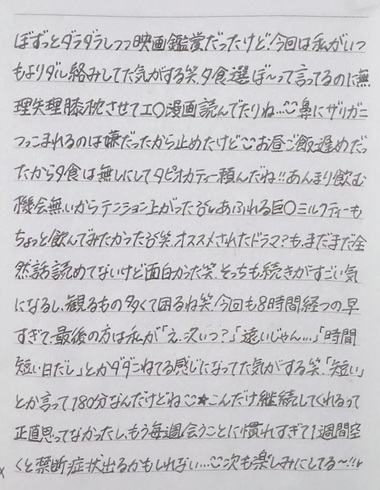 ぼずっとダラダラしつつ映画鑑賞だったけど、今回は私がいつ
もよりダル絡みしてた気がする笑 夕食選ぼ〜って言ってるのに無
理矢理膝枕させてエ〇漫画読んでたりね…☺鼻にザリガニ
つっこまれるのは嫌だったから止めたけど☺お昼ご飯遅めだっ
たから夕食は無しにしてタピオカティー頼んだね!!あんまり飲む
機会無いからテンション上がった あふれる巨〇ミルクティーも
ちょっと飲んでみたかった 笑 オススメされたドラマ?も、まだまだ全
然話読めてないけど面白かった笑 そっちも続きがすごい気
になるし、観るもの多くて困るね笑 今回も8時間経つの早
すぎて、最後の方は私が「え、次いつ?」「遠いじゃん…」「時間
短い日だし」とかダダこねてる感じになってた気がする笑「短い」
とか言って180分なんだけどね☺★こんだけ継続してくれるって
正直思ってなかったし、もう毎週会うことに慣れすぎて1週間空
くと禁断症状出るかもしれない…☺次も楽しみにしてる〜!!